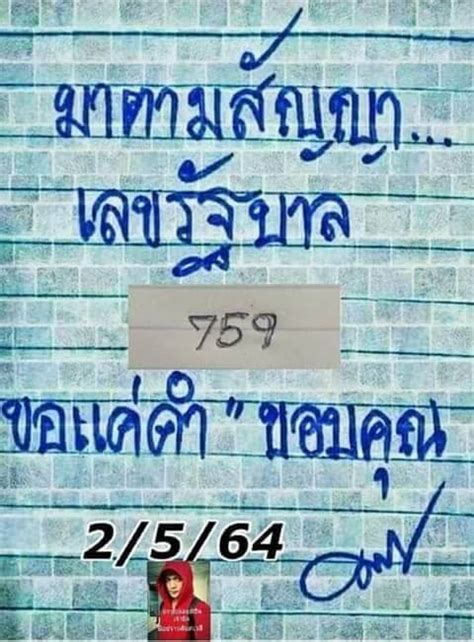 มาตามสัญญา...
เลขรัฐบาล
759
ขอแค่คำ " ขอบคุณ
2/5/64